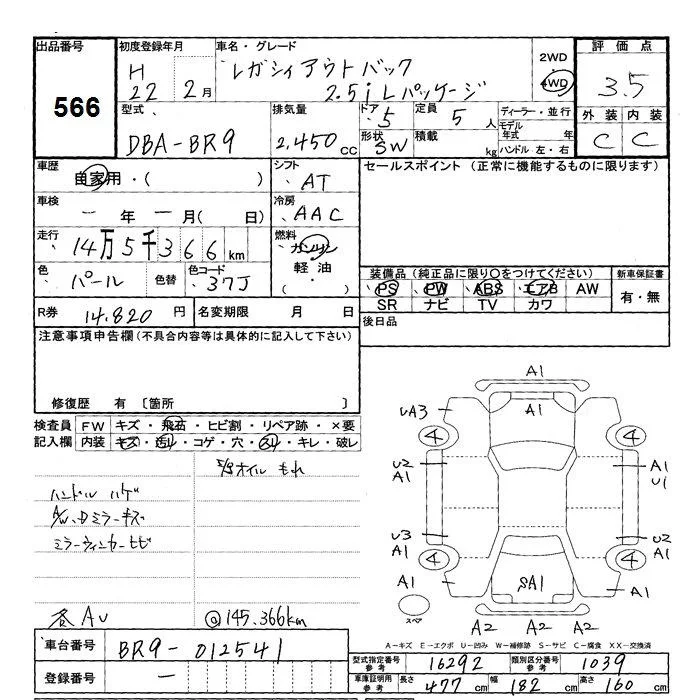 出品番号 初度登録年月 車名・グレード 評価点
566
H 22 2月
レガシィアウトバック 2WD
2.5i Lパッケージ 4WD 3.5
型式 排気量 ドア 5 定員 5人 ディーラー・並行 外装 内装
モデル年式 年
DBA-BR9 2,450cc 形状 SW 積載 kg ハンドル 左・右 C C
車歴 自家用・( ) シフト AT セールスポイント (正常に機能するものに限ります)
車検 ー年ー月( 日) 冷房 AAC
走行 14万5千366km 燃料 ガソリン
軽油・( )
色 パール 色替 色コード 37J 装備品 (純正品に限り○をつけてください) 新車保証書
PS PW ABS エアB AW 有・無
SR ナビ TV カワ
R券 14,820円 名変期限 月 日 後日品
注意事項申告欄(不具合内容等は具体的に記入して下さい)
修復歴 有 〔箇所 〕
検査員記入欄 FW キズ・飛石・ヒビ割・リペア跡・×要
内装 キズ・汚れ・コゲ・穴・スレ・キレ・破レ
オイル もれ
ハンドル ハゲ
A/W、Dミラーキズ
ミラーウィンカーヒビ
各AU @145,366km
A1
A1
UA3
4 4
U2 A1
A1 U1
U3 U2
A1 A1
4 4
A1 SA1 A1
スペア A2 A2 A2
A-キズ E-エクボ U-凹み W-補修跡 S-サビ C-腐食 XX-交換済
車台番号 BR9-012541
型式指定番号参考 16292 類別区分番号参考 1039
登録番号 ー
車庫証明用参考 長さ 477cm 幅 182cm 高さ 160cm